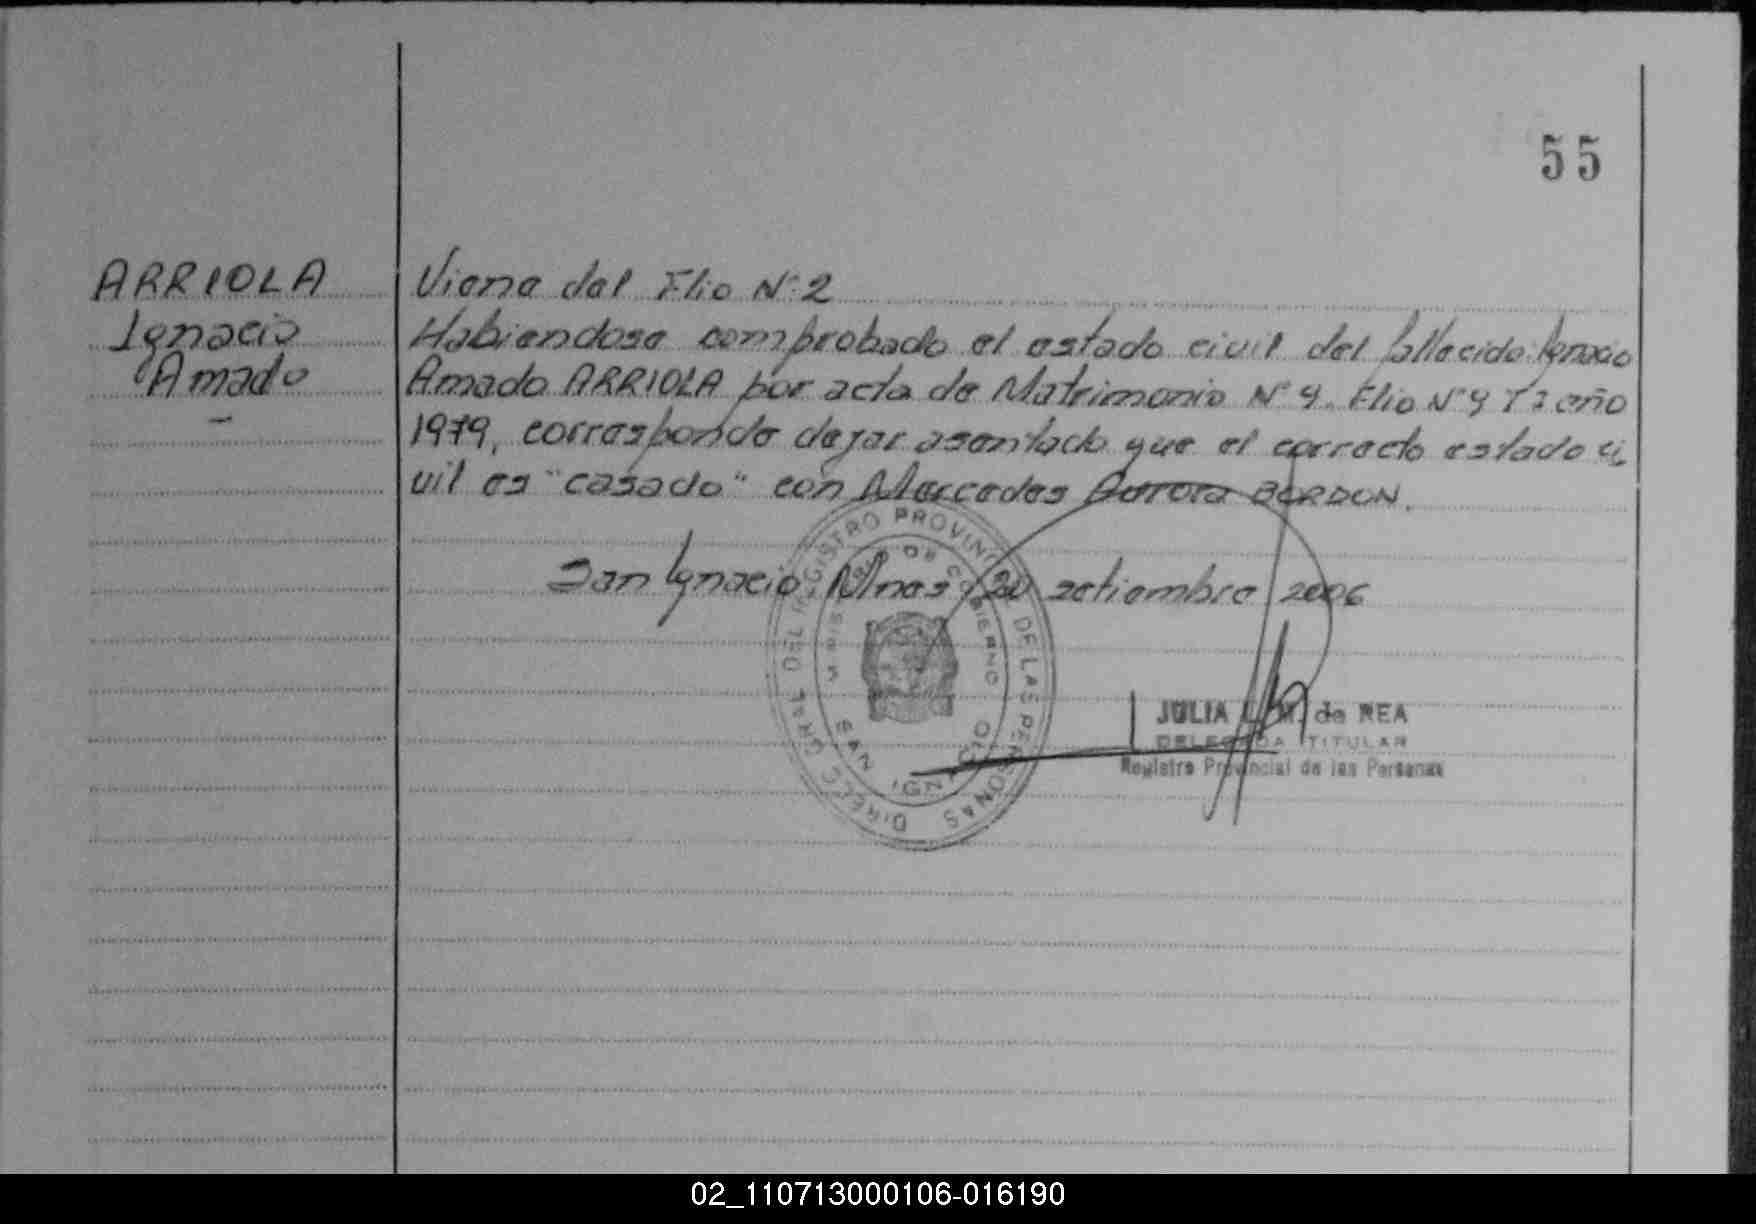 55
ARRIOLA
Ignacio
Amado
-
Viene del Flio N° 2
Habiendose comprobado el estado civil del fallecido Ignacio
Amado ARRIOLA por acta de Matrimonio N° 9. Flio N° 9 T° año
1979, corresponde dejar asentado que el correcto estado ci
vil es "casado" con Mercedes Aurora BORDON.
San Ignacio, Mnes, 20 setiembre 2006
DIRECC GRAL DEL REGISTRO PROVINC DE LAS PERSONAS
SAN IGNACIO
JULIA L. M. de REA
DELEGADA TITULAR
Registro Provincial de las Personas
02_110713000106-016190